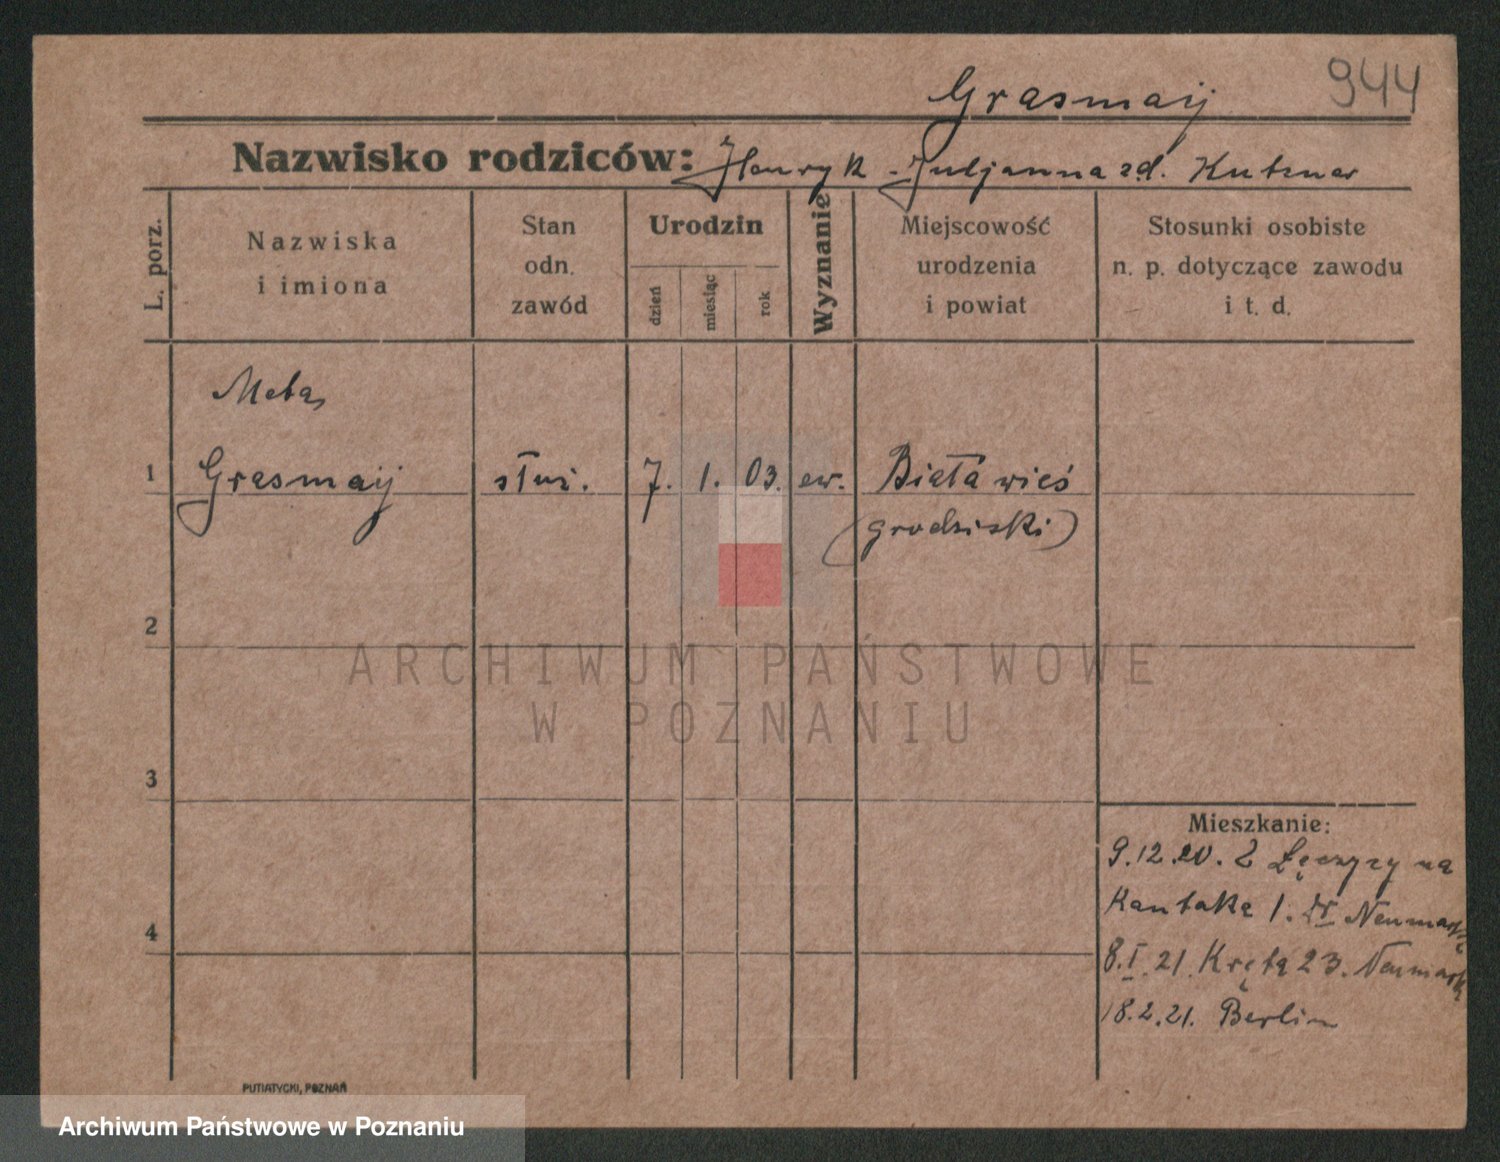 944
Grasmaij
Nazwisko rodziców: Henryk - Juljanna zd. Kutzner
L. porz.
Nazwiska
i imiona
Stan
odn.
zawód
Urodzin
dzień
miesiąc
rok
Wyznanie
Miejscowość
urodzenia
i powiat
Stosunki osobiste
n. p. dotyczące zawodu
i t. d.
Meta,
1 Grasmaij służ. 7. 1. 03. ew. Biała wieś
(grodziski)
2
ARCHIWUM PAŃSTWOWE
W POZNANIU
3
Mieszkanie:
9.12.20. Z Łęczycy na
Kantaka 1. IV
4
8.I.21. Kręta 23.
18.2.21. Berlin
PUTIATYCKI, POZNAŃ
Archiwum Państwowe w Poznaniu